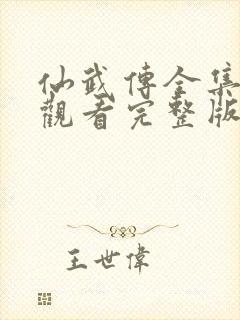 仙武傳全集
觀看完整版
王世偉